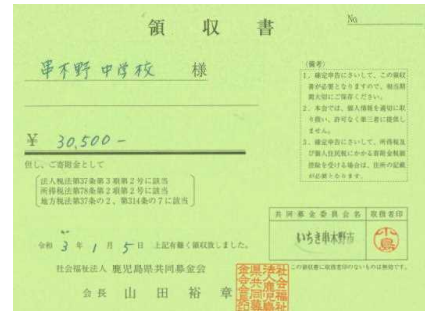 領収書
No.
串木野中学校 様
¥ 30,500-
但し、ご寄附金として
法人税法第37条第3項第2号に該当
所得税法第78条第2項第2号に該当
地方税法37条の2、第314条の7に該当
令和 3年 1月 5日 上記有難く領収致しました。
社会福祉法人 鹿児島県共同募金会
会長 山田裕章
(備考)
1. 確定申告にさいして、この領収
書が必要となりますので、相当期
間大切にご保存ください。
2. 本会では、個人情報を適切に取
り扱い、許可なく第三者に提供し
ません。
3. 確定申告にさいして、所得税及
び個人住民税にかかる寄附金税額
控除を受ける場合は、住所の記載
が必要となります。
共同募金委員会名 取扱者印
いちき串木野市
小島
この領収書に取扱者印のないものは無効です。